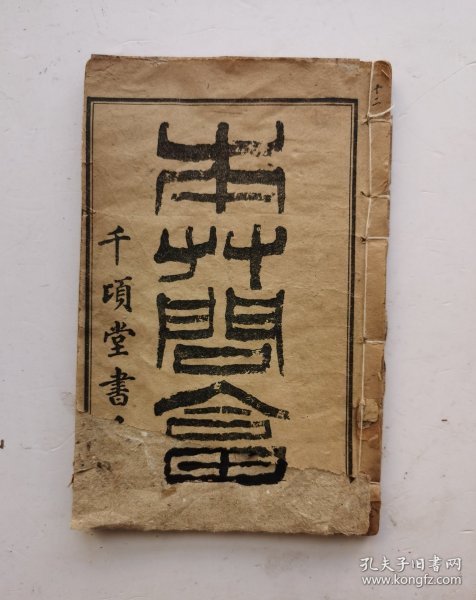 本艸問畣
千頃堂書
孔夫子旧书网
www.kongfz.com